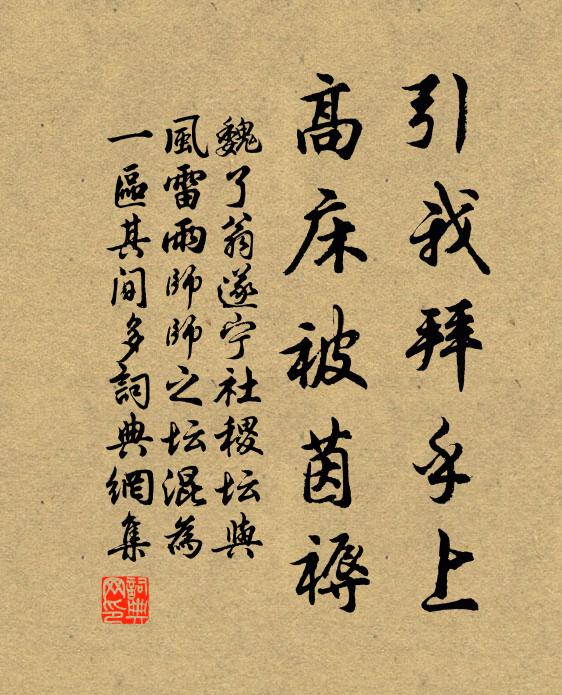 引我拜手上
高床被茵褥
魏了翁遂宁社稷坛與
風雷雨師師之坛混為
一區其间多詞典網集
詞典网印